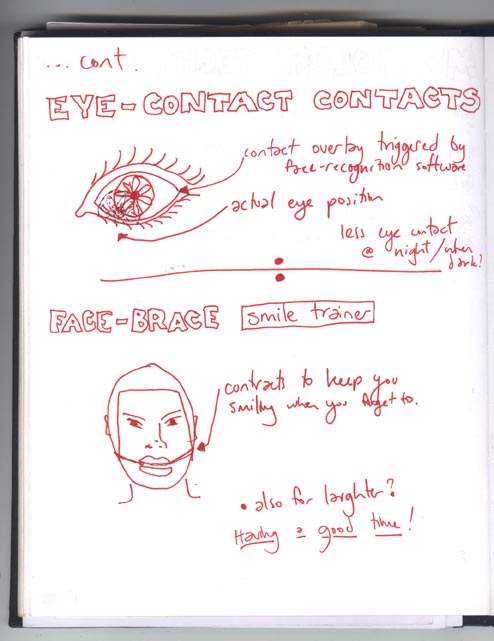 ... cont.
EYE-CONTACT CONTACTS
contact overlay triggered by
face-recognition software
actual eye position
less eye contact
@ night/when
dark?
FACE-BRACE smile trainer
contracts to keep you
smiling when you forget to.
• also for laughter?
Having a good time!